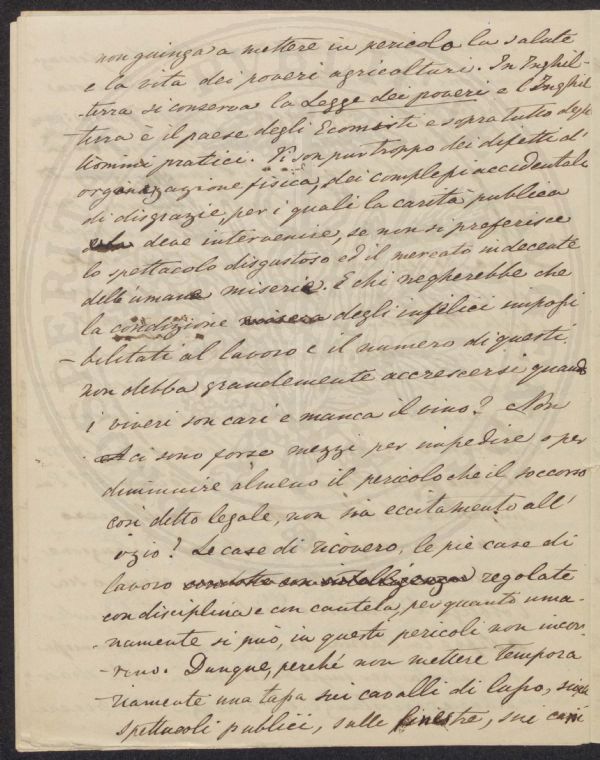 non giunga a mettere in pericolo la salute
e la vita dei poveri agricoltori. In Inghil-
-terra si conserva la Legge dei poveri e l'Inghil
terra è il paese degli Economisti e sopratutto degli
uomini pratici. Vi son pur troppo dei difetti d'
organizzazione fisica, dei complessi accidentali
di disgrazie, per i quali la carità publica
deve intervenire, se non si preferisce
lo spettacolo disgustoso ed il mercato indecente
dell' umane miserie. E chi negherebbe che
la condizione misera degli infelici impossi
-bilitati al lavoro e il numero di questi
non debba grandemente accrescersi quando
i viveri son cari e manca il vino? Non
ci sono forse mezzi per impedire o per
diminuire almeno il pericolo che il soccorso
così detto legale, non sia eccitamento all'
ozio? Le case di ricovero, le pie case di
lavoro condotte con intelligenza regolate
con disciplina e con cautela, per quanto uma-
-namente si può, in questi pericoli non incor-
-rono. Dunque, perché non mettere tempora
riamente una tassa sui cavalli di lusso, sugli
spettacoli publici, sulle finestre, sui cani